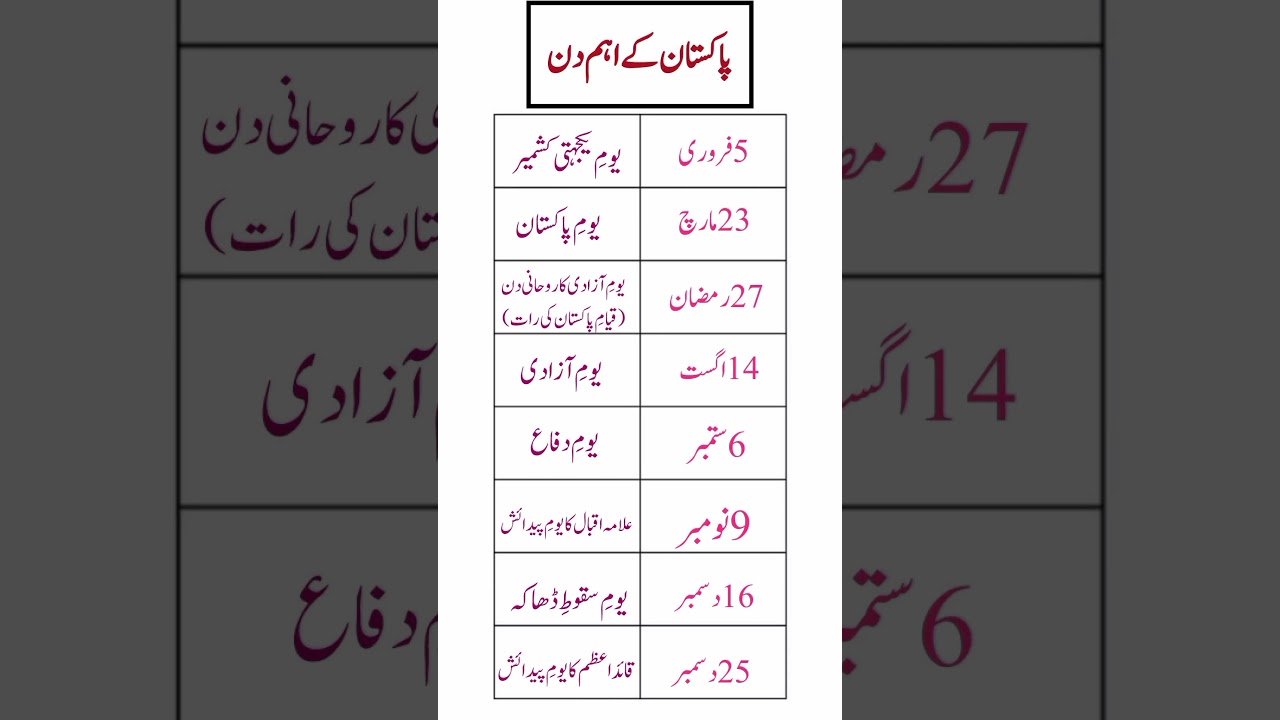 پاکستان کے اہم دن
5فروری یومِ یکجہتی کشمیر
23مارچ یومِ پاکستان
27رمضان یومِ آزادی کا روحانی دن
(قیامِ پاکستان کی رات)
14اگست یومِ آزادی
6ستمبر یومِ دفاع
9نومبر علامہ اقبال کا یومِ پیدائش
16دسمبر یومِ سقوطِ ڈھاکہ
25دسمبر قائداعظم کا یومِ پیدائش